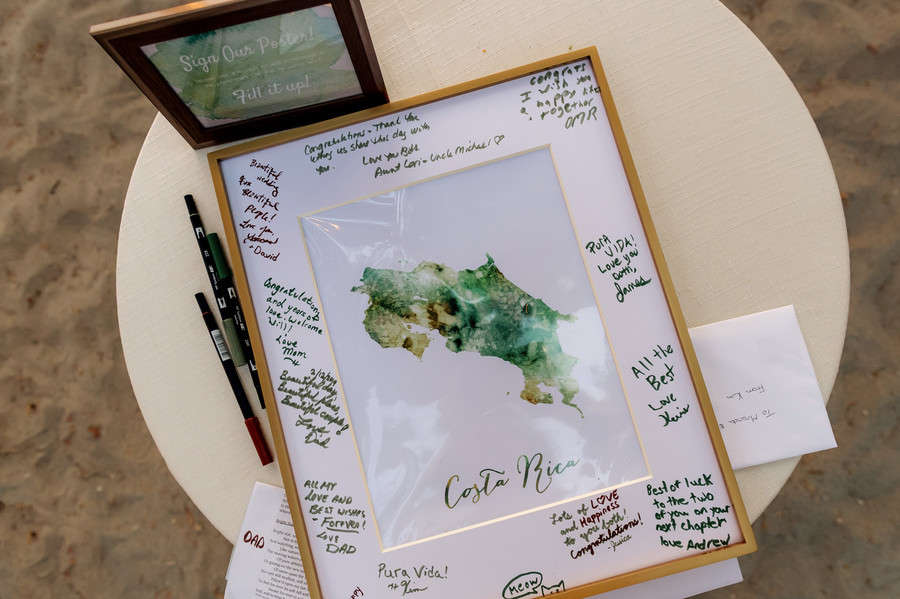 Sign Our Poster!
Fill it up!
Congratulations - Thank You
letting us share this day with
you.
Love you Both
Aunt Lori + Uncle Michael
Congrats
I wish you
a happy
together
OMR
Beautiful
wedding
For
Beautiful
People!
Love you,
+ David
PURA
VIDA!
Love you
both,
James
Congratulations
and years of
love. Welcome
Will!
Love
Mom
All the
Best
Love
Beautiful day
Beautiful
Beautiful couple!
Love
Dad
Costa Rica
ALL MY
LOVE AND
BEST WISHES
- FOREVER!
LOVE
DAD
Lots of LOVE
and Happiness
to you both!
Congratulations!
- Jessica
Best of luck
to the two
of you on your
next chapter
love Andrew
Pura Vida!
Kim
meow
From Kim
To
DAD